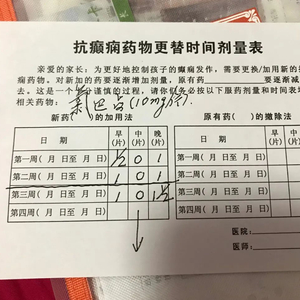 抗癫痫药物更替时间剂量表
亲爱的家长：为更好地控制孩子的癫痫发作，需要更换/加用新的抗
痫药物。对新加的药要逐渐增加剂量，原有药 要逐渐减
去。这是一个十分谨慎的过程，请你务必按以下服药剂量和时间表
相关药物：氯巴占(10mg/片)
新药 的加用法 原有药（ ）的撤除法
日 期 早(片) 中(片) 晚(片) 日 期 早(片)
第一周(月 日至 月 日) ½ 0 1 第一周(月 日至 月 日)
第二周(月 日至 月 日) 1 0 1 第二周(月 日至 月 日)
第三周(月 日至 月 日) 1 0 1½ 第三周(月 日至 月 日)
第四周(月 日至 月 日) 第四周(月 日至 月 日)
医院：
医师：